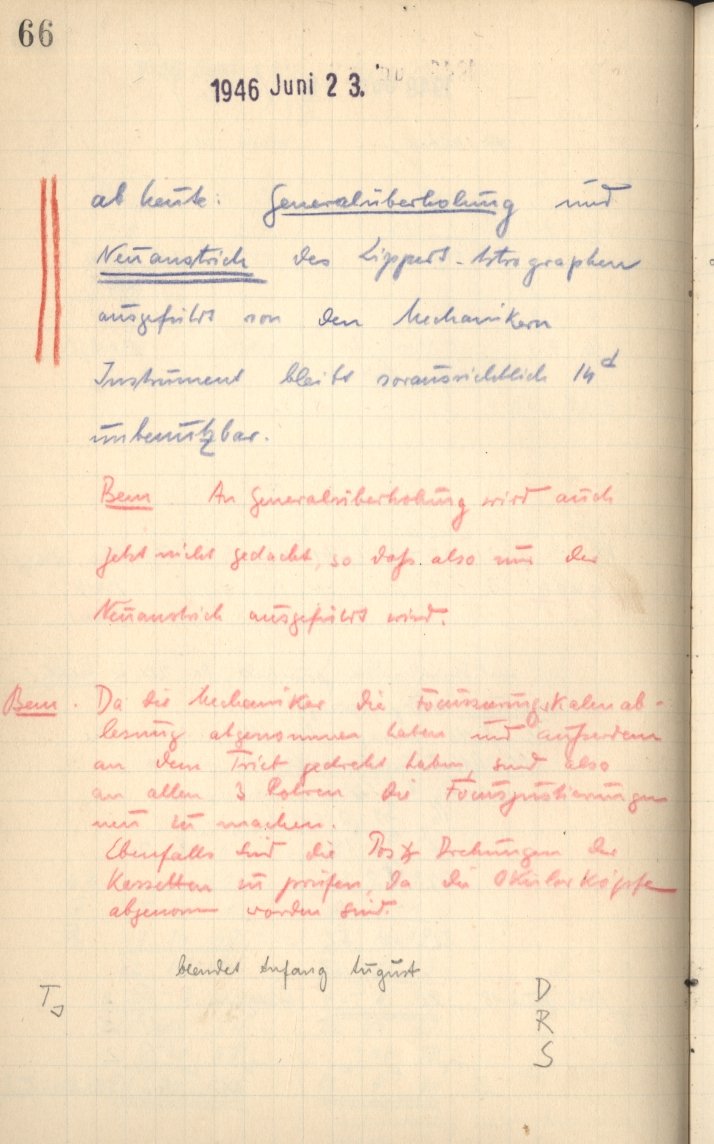 66
1946 Juni 23.
ab heute: Generalüberholung und
Neuanstrich des Lippert-Astrographen
ausgeführt von den Mechanikern
Instrument bleibt voraussichtlich 14d
unbenutzbar.
Bem An Generalüberholung wird auch
jetzt nicht gedacht, so daß also nur der
Neuanstrich ausgeführt wird.
Bem. Da die Mechaniker die Focussierungsskalenab-
lesung abgenommen haben und außerdem
an dem Trieb gedreht haben, sind also
an allen 3 Rohren die Focusjustierungen
neu zu machen.
Ebenfalls sind die Drehungen der
Kassetten zu prüfen, da die Okularköpfe
abgenomm worden sind.
beendet Anfang August
D
R
S